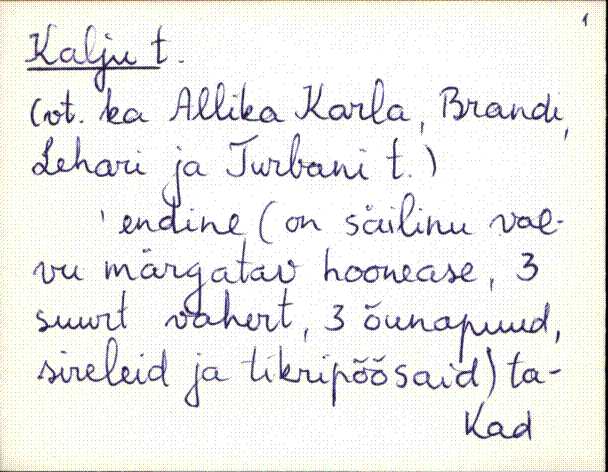 1
Kalju t.
(vt. ka Allika Karla, Brandi,
Lehari ja Turbani t.)
'endine (on säilinu vae-
vu märgatav hoonease, 3
suurt vahert, 3 õunapuud,
sireleid ja tikripõõsaid) ta-
kad